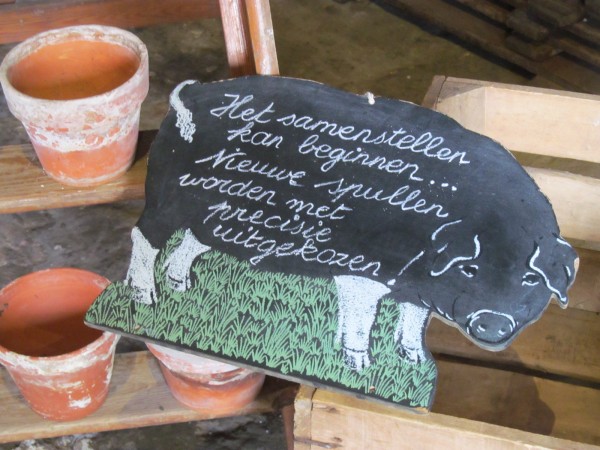 Het samenstellen
kan beginnen...
Nieuwe spullen
worden met
precisie
uitgekozen!